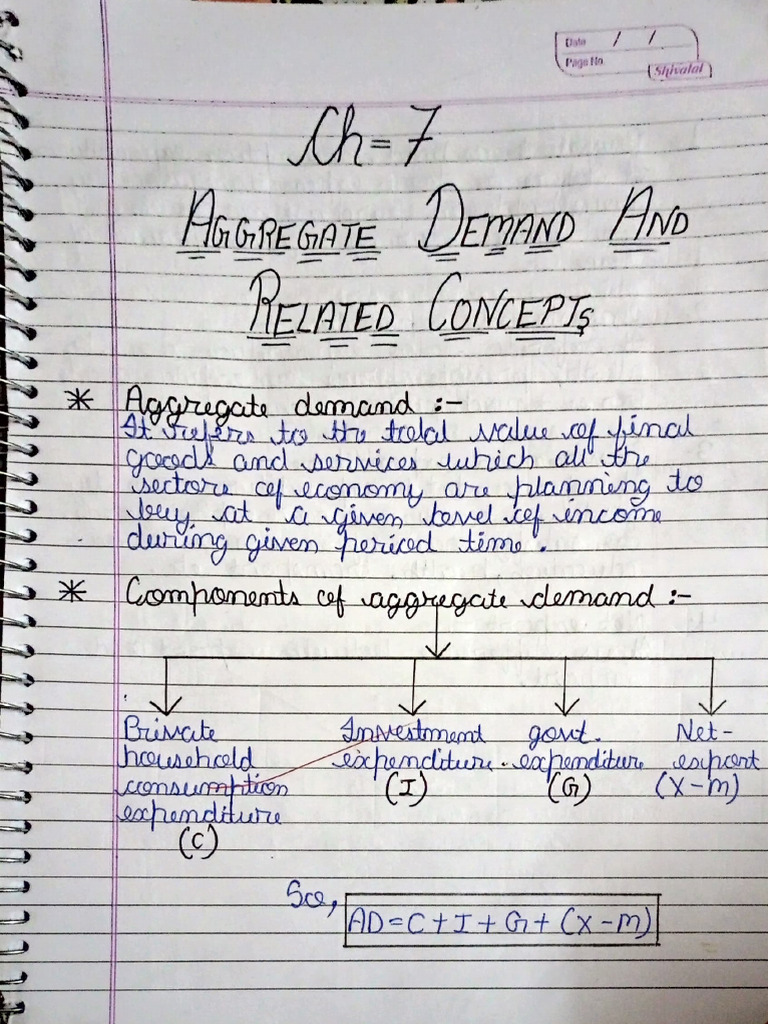 Date / /
Page No.
Shivalal
Ch = 7
AGGREGATE DEMAND AND
RELATED CONCEPTS
* Aggregate demand :-
It refers to the total value of final
goods and services which all the
sectors of economy are planning to
buy at a given level of income
during given period time.
* Components of aggregate demand :-
Private household consumption expenditure (C)
Investment expenditure. (I)
govt. expenditure (G)
Net-export (X-M)
So, AD = C + I + G + (X-M)